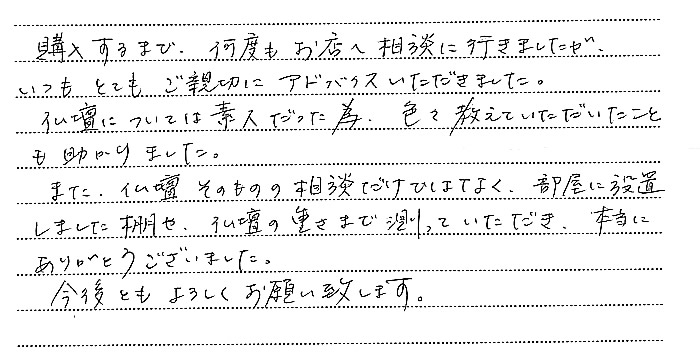 購入するまで、何度もお店へ相談に行きましたが、
いつもとてもご親切にアドバイスいただきました。
仏壇については素人だった為、色々教えていただいたこと
も助かりました。
また、仏壇そのものの相談だけではなく、部屋に設置
しました棚や、仏壇の重さまで測っていただき、本当に
ありがとうございました。
今後ともよろしくお願い致します。